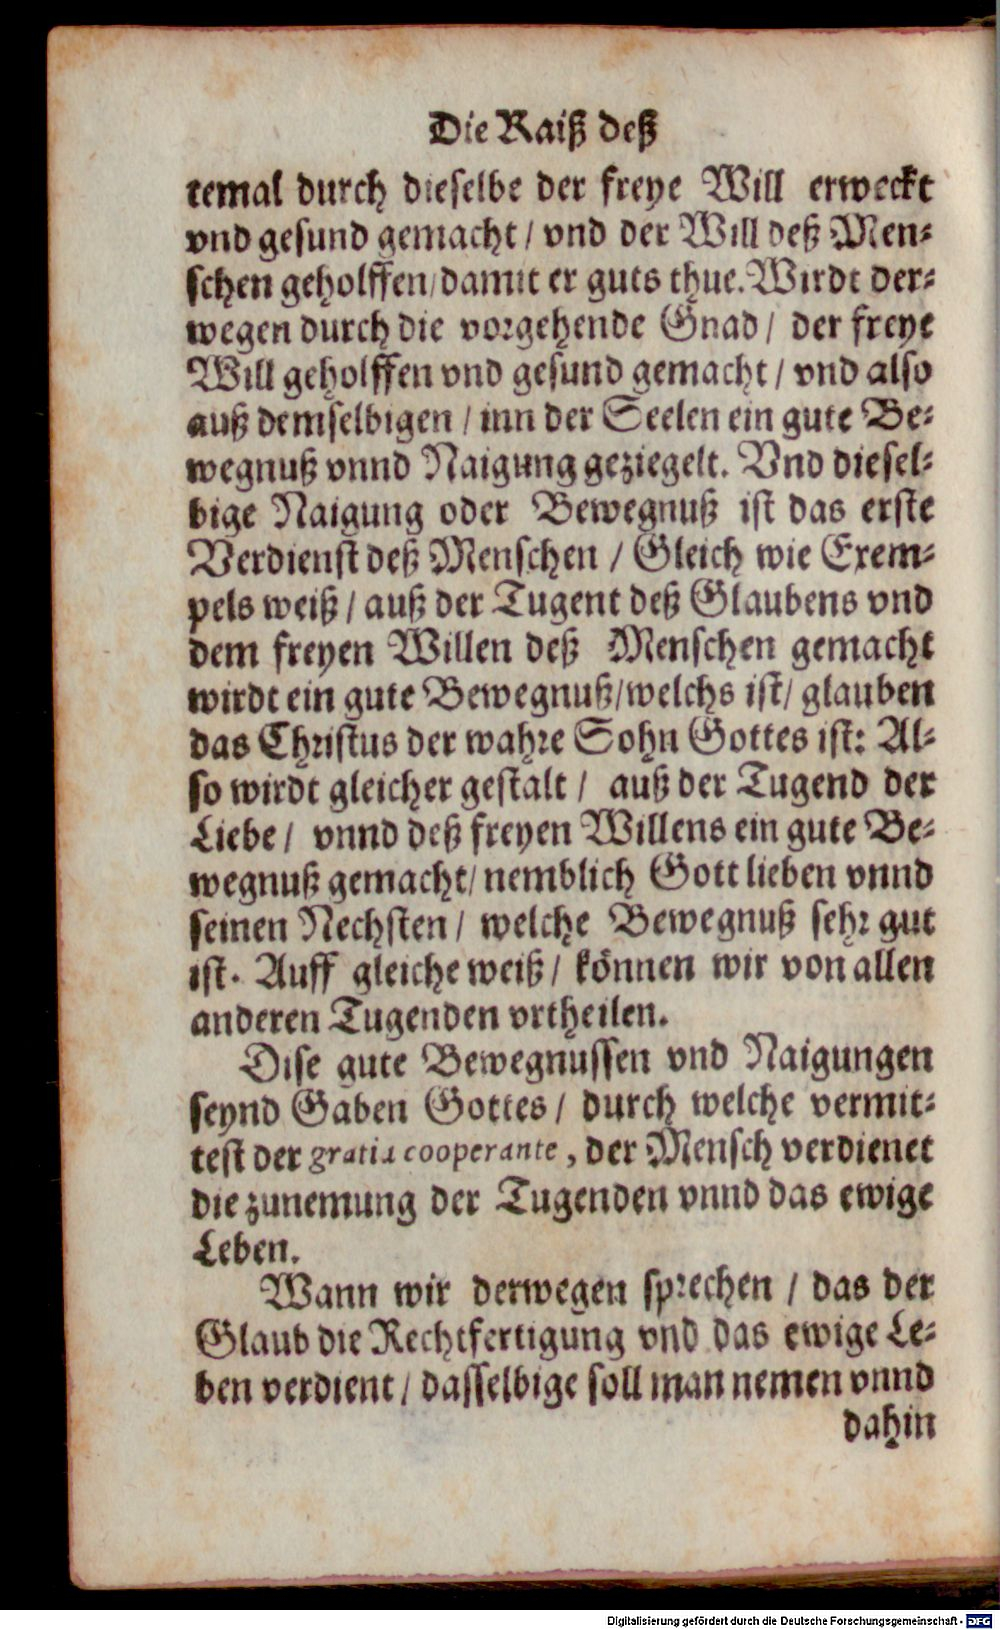 Die Raiß deß
temal durch dieselbe der freye Will erweckt
vnd gesund gemacht / vnd der Will deß Men-
schen geholffen / damit er guts thue. Wirdt der-
wegen durch die vorgehende Gnad / der freye
Will geholffen vnd gesund gemacht / vnd also
auß demselbigen / inn der Seelen ein gute Be-
wegnuß vnnd Naigung geziegelt. Vnd diesel-
bige Naigung oder Bewegnuß ist das erste
Verdienst deß Menschen / Gleich wie Exem-
pels weiß / auß der Tugent deß Glaubens vnd
dem freyen Willen deß Menschen gemacht
wirdt ein gute Bewegnuß / welchs ist / glauben
das Christus der wahre Sohn Gottes ist: Al-
so wirdt gleicher gestalt / auß der Tugend der
Liebe / vnnd deß freyen Willens ein gute Be-
wegnuß gemacht / nemblich Gott lieben vnnd
seinen Nechsten / welche Bewegnuß sehr gut
ist. Auff gleiche weiß / können wir von allen
anderen Tugenden vrtheilen.
Dise gute Bewegnussen vnd Naigungen
seynd Gaben Gottes / durch welche vermit-
test der gratia cooperante, der Mensch verdienet
die zunemung der Tugenden vnnd das ewige
Leben.
Wann wir derwegen sprechen / das der
Glaub die Rechtfertigung vnd das ewige Le-
ben verdient / dasselbige soll man nemen vnnd
dahin
Digitalisierung gefördert durch die Deutsche Forschungsgemeinschaft - DFG